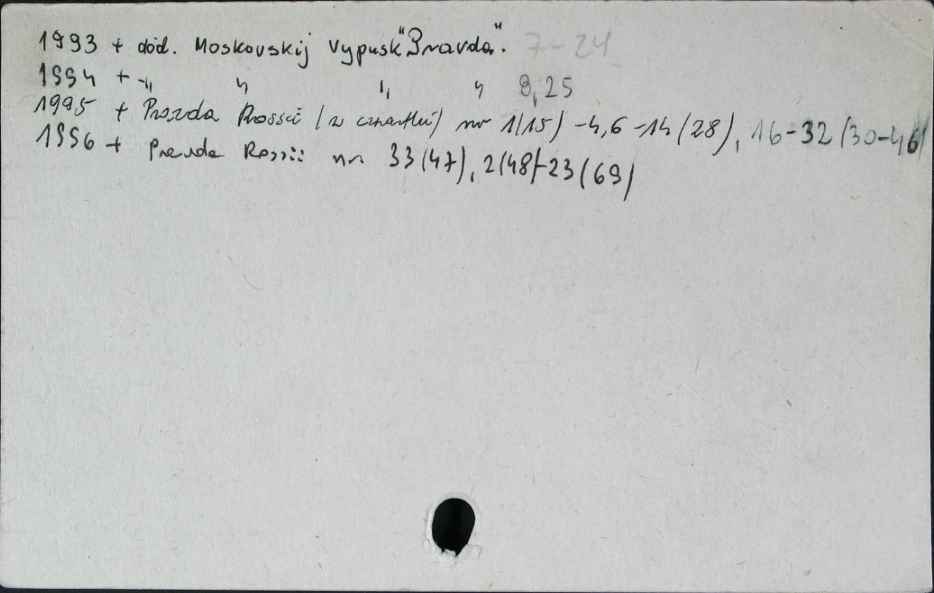 1993 + dod. Moskovskij Vypusk "Pravda". 7-24
1994 + -„ „ „ „ 8,25
1995 + Prawda Rossii (w czwartki) nr 1(15)-4,6-14(28), 16-32(30-46)
1996 + Prawda Rossii nr 33(47), 2(48)-23(69)